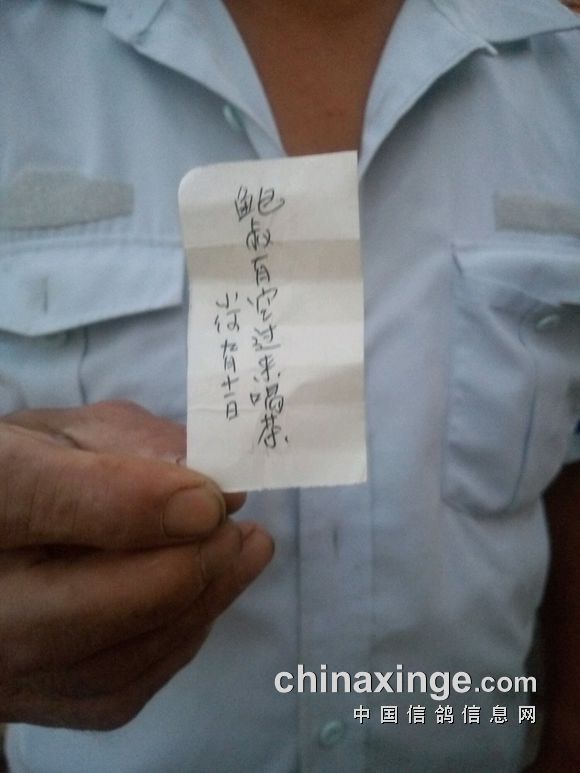 鲍叔有空过来喝茶.
小何 九月十一日
chinaxinge.com
中国信鸽信息网